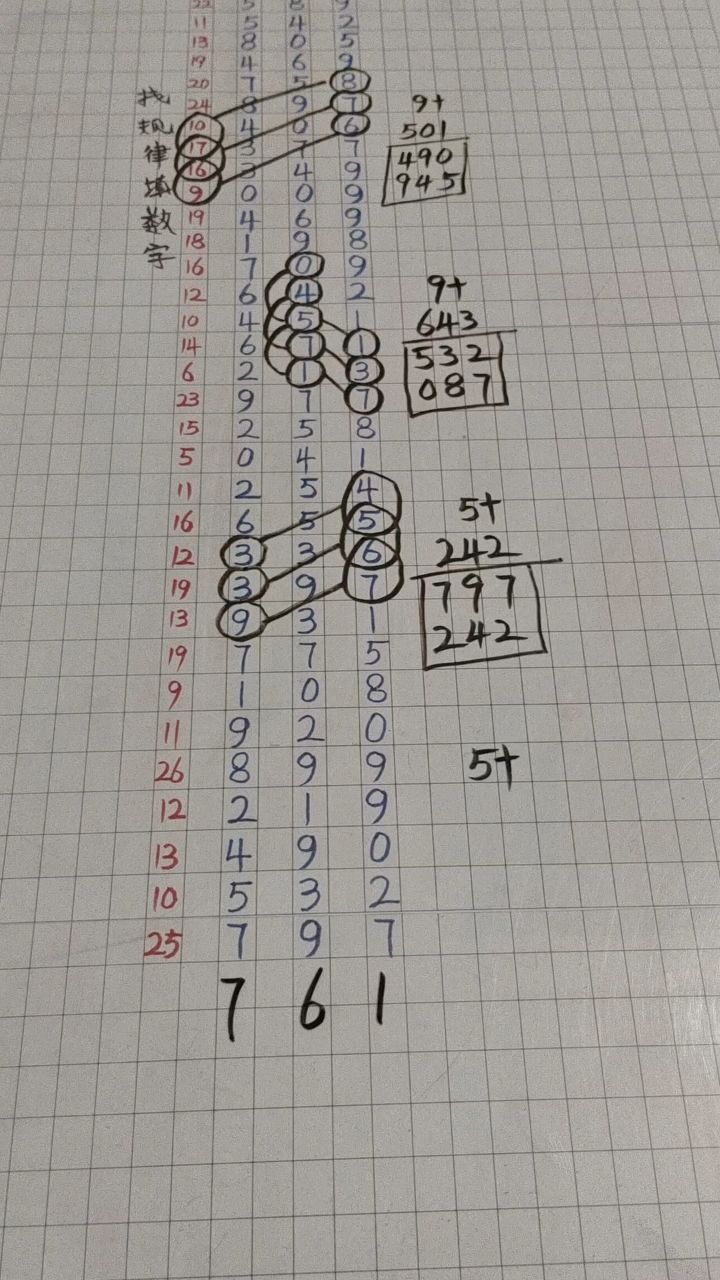 找规律填数字
22 5 8 9
11 5 4 2
13 8 0 5
19 4 6 9
20 7 5 8
24 8 9 7
10 4 0 6
17 3 7 7
16 3 4 9
9 0 0 9
19 4 6 9
18 1 9 8
16 7 0 9
12 6 4 2
10 4 5 1
14 6 7 1
6 2 1 3
23 9 7 7
15 2 5 8
5 0 4 1
11 2 5 4
16 6 5 5
12 3 3 6
19 3 9 7
13 9 3 1
19 7 7 5
9 1 0 8
11 9 2 0
26 8 9 9
12 2 1 9
13 4 9 0
10 5 3 2
25 7 9 7
7 6 1
9+
501
490
945
9+
643
532
087
5+
242
797
242
5+